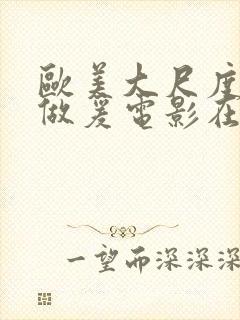 歐美大尺度
做爰電影在
一望而深深深